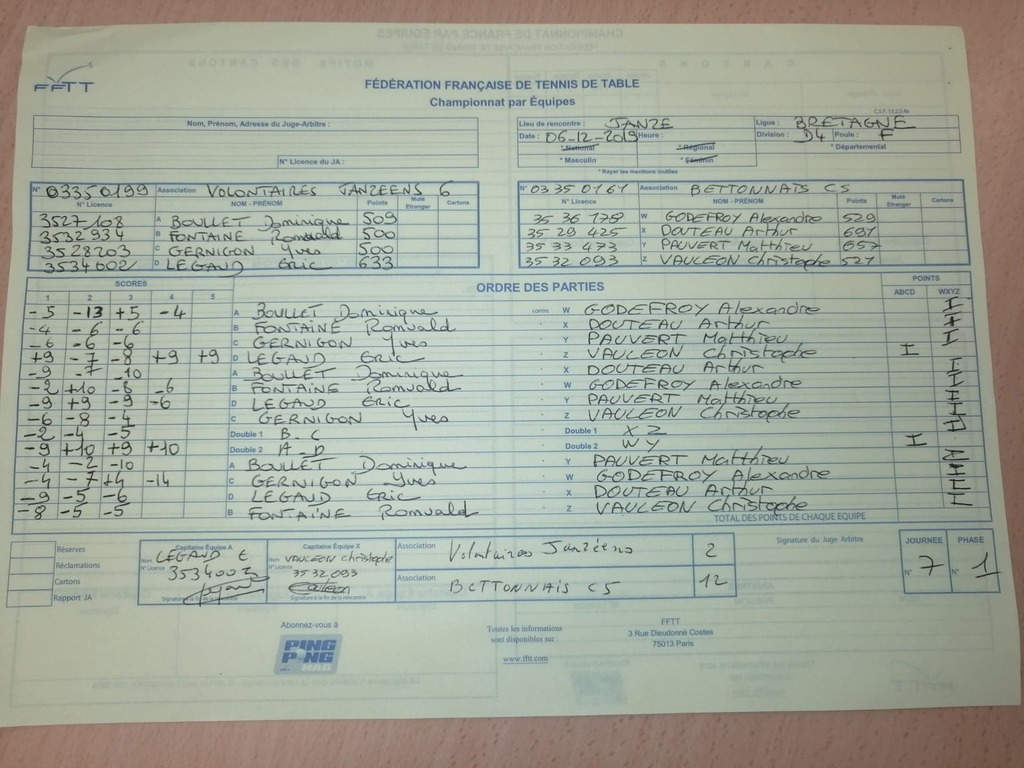 FFTT
FÉDÉRATION FRANÇAISE DE TENNIS DE TABLE
Championnat par Équipes
Nom, Prénom, Adresse du Juge-Arbitre :
N° Licence du JA :
Lieu de rencontre : JANZE Ligue : BRETAGNE
Date : 06-12-2019 Heure : Division : D4 Poule : F
* National * Régional * Départemental
* Masculin * Féminin
* Rayer les mentions inutiles
N° 03350199 Association VOLONTAIRES JANZEENS 6
N° Licence NOM - PRÉNOM Points Muté Etranger Cartons
3527108 A BOULLET Dominique 509
3532934 B FONTAINE Romuald 500
3528203 C GERNIGON Yves 500
3534002 D LEGAUD Eric 633
N° 03350161 Association BETTONNAIS C5
N° Licence NOM - PRÉNOM Points Muté Etranger Cartons
3536178 W GODEFROY Alexandre 529
3529425 X DOUTEAU Arthur 691
3533473 Y PAUVERT Matthieu 657
3532093 Z VAULEON Christophe 527
SCORES ORDRE DES PARTIES POINTS
1 2 3 4 5 ABCD WXYZ
-5 -13 +5 -4 A BOULLET Dominique contre W GODEFROY Alexandre I
-4 -6 -6 B FONTAINE Romuald X DOUTEAU Arthur I
-6 -6 -6 C GERNIGON Yves Y PAUVERT Matthieu I
+9 -7 -8 +9 +9 D LEGAUD ERIC Z VAULEON Christophe I
-9 -7 -10 A BOULLET Dominique X DOUTEAU Arthur I
-2 +10 -8 -6 B FONTAINE Romuald W GODEFROY Alexandre I
-9 +9 -9 -6 D LEGAUD ERIC Y PAUVERT Matthieu I
-6 -8 -4 C GERNIGON Yves Z VAULEON Christophe I
-2 -4 -5 Double 1 B.C Double 1 XZ I
-9 +10 +9 +10 Double 2 A.D Double 2 WY I
-4 -2 -10 A BOULLET Dominique Y PAUVERT Matthieu I
-4 -7 +4 -14 C GERNIGON Yves W GODEFROY Alexandre I
-9 -5 -6 D LEGAUD Eric X DOUTEAU Arthur I
-8 -5 -5 B FONTAINE Romuald Z VAULEON Christophe I
TOTAL DES POINTS DE CHAQUE EQUIPE
Réserves
Réclamations
Cartons
Rapport JA
Capitaine Équipe A
Nom LEGAUD E
N° Licence 3534002
Signature à la fin de la rencontre
Capitaine Équipe X
Nom VAULEON Christophe
N° Licence 3532093
Signature à la fin de la rencontre
Association Volontaires Janzéens 2
Association BETTONNAIS C5 12
Signature du Juge Arbitre
JOURNEE PHASE
N° 7 N° 1
Abonnez-vous à
PING PONG MAG
Toutes les informations
sont disponibles sur :
www.fftt.com
FFTT
3 Rue Dieudonné Costes
75013 Paris